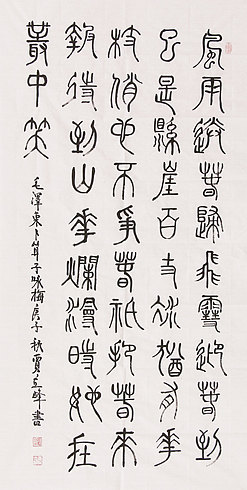 風雨送春歸飛雪迎春到
已是縣崖百丈冰猶有華
枝俏也不爭春祇把春來
報待到山華爛漫時她在
叢中笑
毛澤東卜算子咏梅庚子秋賈立峰書